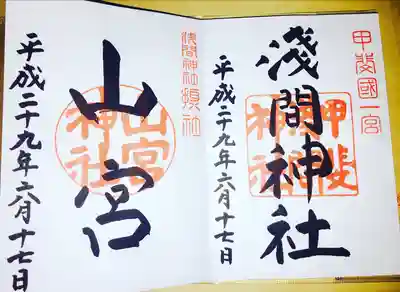 甲斐國一宮
淺間神社
平成二十九年六月十七日
淺間神社攝社
山宮
山宮神社
平成二十九年六月十七日